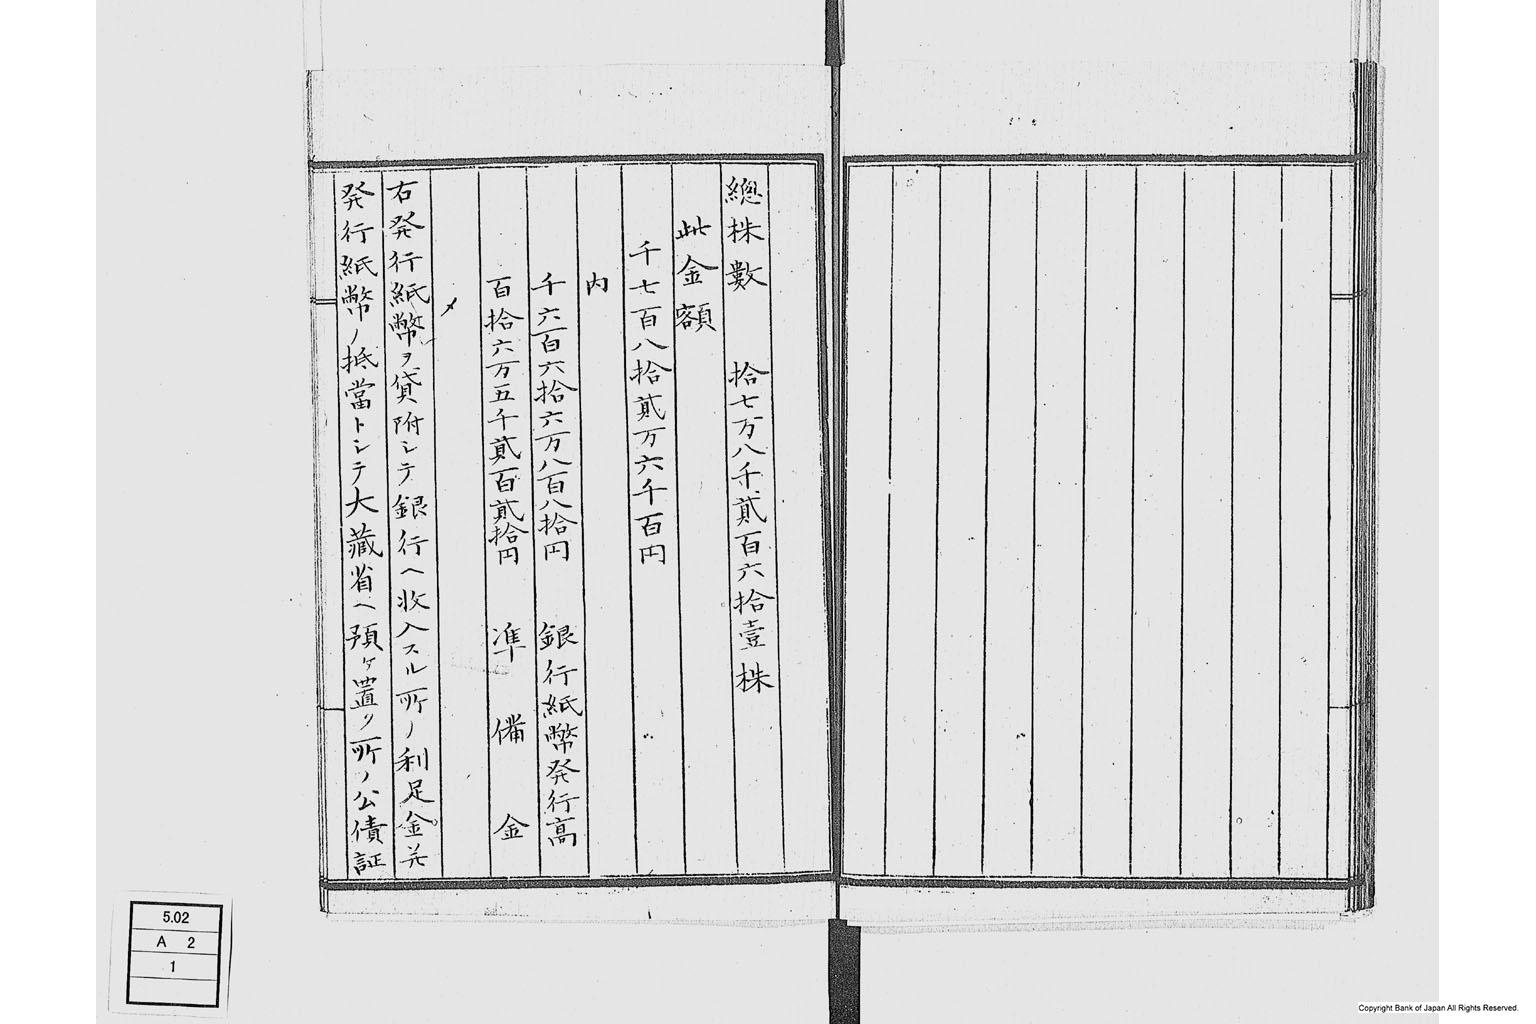 總株數　拾七万八千貳百六拾壹株
此金額
千七百八拾貳万六千百円
内
千六百六拾六万八百八拾円　銀行紙幣発行高
百拾六万五千貳百貳拾円　準備金
〆
右発行紙幣ヲ貸附シテ銀行ヘ收入スル所ノ利足金并
発行紙幣ノ抵當トシテ大藏省ヘ預ケ置ク所ノ公債証
5.02
A 2
1
Copyright Bank of Japan All Rights Reserved.